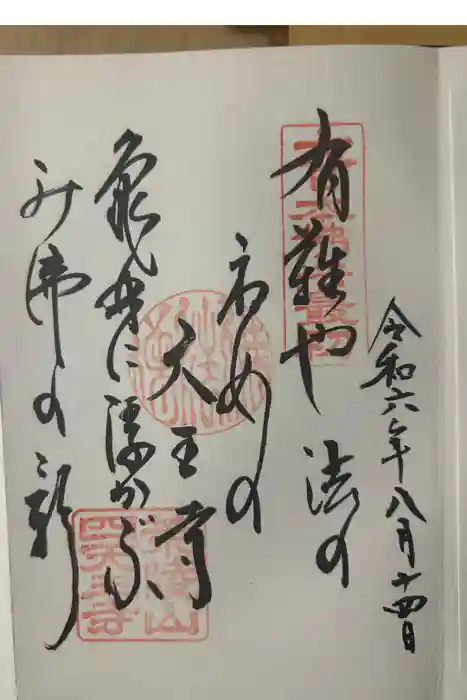 令和六年八月十四日
有難や 法の
初めの
天王寺
亀井に浮かぶ
み佛の影
荒陵山
四天王寺